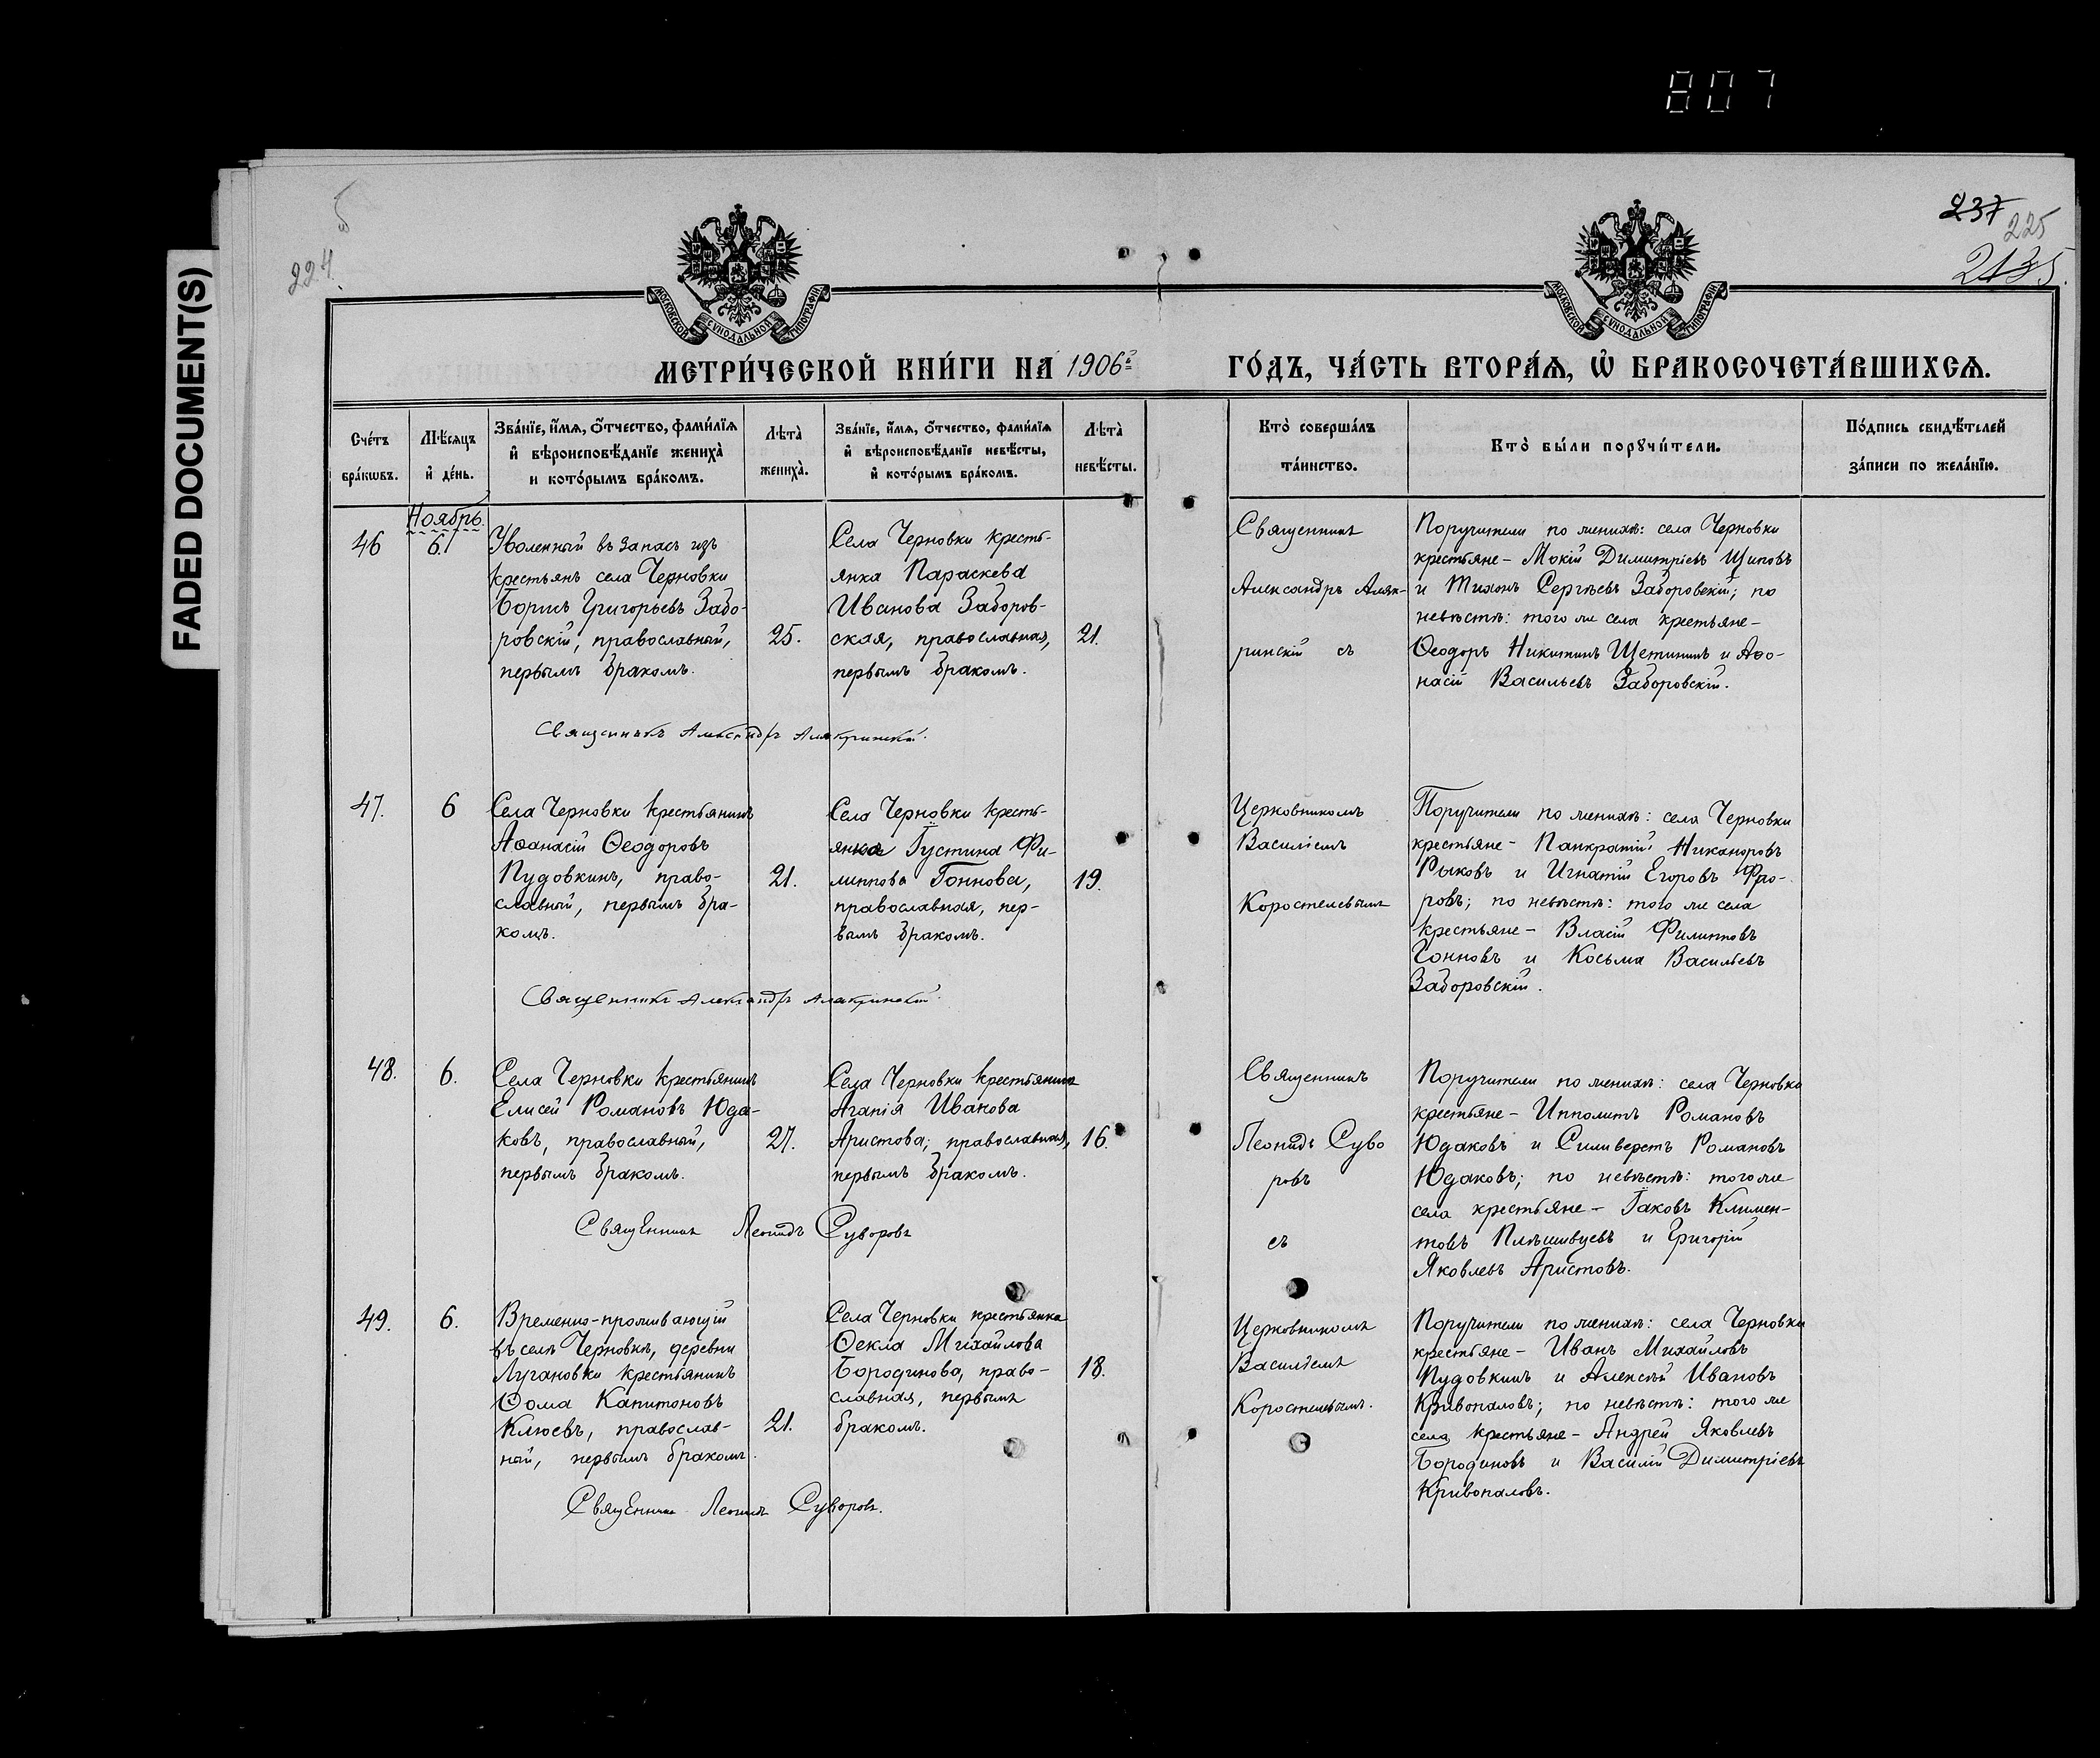 807
FADED DOCUMENT(S)
224.
237
225
2135
МОСКОВСКОЙ СУНОДАЛЬНОЙ ТИПОГРАФІИ
МОСКОВСКОЙ СУНОДАЛЬНОЙ ТИПОГРАФІИ
МЕТРИ́ЧЕСКОЙ КНИ́ГИ НА 1906й
ГО́ДЪ, ЧА́СТЬ ВТОРА́Ѧ, Ѡ҆ БРАКОСОЧЕТА́ВШИХСѦ.
Сче́тъ
бра́кѡвъ.
Мѣ́сяцъ
и҆ де́нь.
Зва́нїе, и҆́мѧ, ѻ҆́тчество, фами́лїѧ
и҆ вѣроисповѣ́данїе жениха̀
и кото́рымъ бра́комъ.
Лѣта̀
жениха̀.
Зва́нїе, и҆́мѧ, ѻ҆́тчество, фами́лїѧ
и҆ вѣроисповѣ́данїе невѣ́сты,
и҆ кото́рымъ бра́комъ.
Лѣта̀
невѣ́сты.
Кто̀ соверша́лъ
та́инство.
Кто̀ бы́ли порꙋчи́тели.
По́дпись свидѣ́телей
за́писи по жела́нїю.
Ноябрь.
46
6.
Уволенный въ запасъ изъ
крестьянъ села Черновки
Борисъ Григорьевъ Забо-
ровскій, православный,
первымъ бракомъ.
25.
Села Черновки кресть-
янка Параскева
Иванова Заборов-
ская, православная,
первымъ бракомъ.
21.
Священникъ
Александръ Аляк-
ринскій съ
Поручители по женихѣ: села Черновки
крестьяне - Мокій Димитріевъ Щиповъ
и Тихонъ Сергѣевъ Заборовскій; по
невѣстѣ: того же села крестьяне -
Ѳеодоръ Никитинъ Щетининъ и Аѳо-
насій Васильевъ Заборовскій.
Священникъ Александръ Алякринскій.
47.
6
Села Черновки крестьянинъ
Аѳанасій Ѳеодоровъ
Пудовкинъ, право-
славный, первымъ бра-
комъ.
21.
Села Черновки кресть-
янка Іустина Фи-
липпова Гоннова,
православная, пер-
вымъ бракомъ.
19.
Церковникомъ
Василіемъ
Коростелевымъ
Поручители по женихѣ: села Черновки
крестьяне - Панкратій Никаноровъ
Рыковъ и Игнатій Егоровъ Фро-
ровъ; по невѣстѣ: того же села
крестьяне - Власій Филипповъ
Гонновъ и Косьма Васильевъ
Заборовскій.
Священникъ Александръ Алякринскій.
48.
6.
Села Черновки крестьянинъ
Елисей Романовъ Юда-
ковъ, православный,
первымъ бракомъ.
27.
Села Черновки крестьянка
Агапія Иванова
Аристова, православная,
первымъ бракомъ.
16.
Священникъ
Леонидъ Суво
ровъ
съ
Поручители по женихѣ: села Черновки
крестьяне - Ипполитъ Романовъ
Юдаковъ и Силиверстъ Романовъ
Юдаковъ; по невѣстѣ: того же
села крестьяне - Іаковъ Климен-
товъ Плѣшивцевъ и Григорій
Яковлевъ Аристовъ.
Священникъ Леонидъ Суворовъ
49.
6.
Временно-проживающій
въ селѣ Черновкѣ, деревни
Лугановки крестьянинъ
Ѳома Капитоновъ
Клюевъ, православ-
ный, первымъ бракомъ.
21.
Села Черновки крестьянка
Ѳекла Михайлова
Бородинова, право-
славная, первымъ
бракомъ.
18.
Церковникомъ
Василіемъ
Коростелевымъ.
Поручители по женихѣ: села Черновки
крестьяне - Иванъ Михайловъ
Пудовкинъ и Алексѣй Ивановъ
Кривопаловъ; по невѣстѣ: того же
села крестьяне - Андрей Яковлевъ
Бородиновъ и Василій Димитріевъ
Кривопаловъ.
Священникъ Леонидъ Суворовъ.